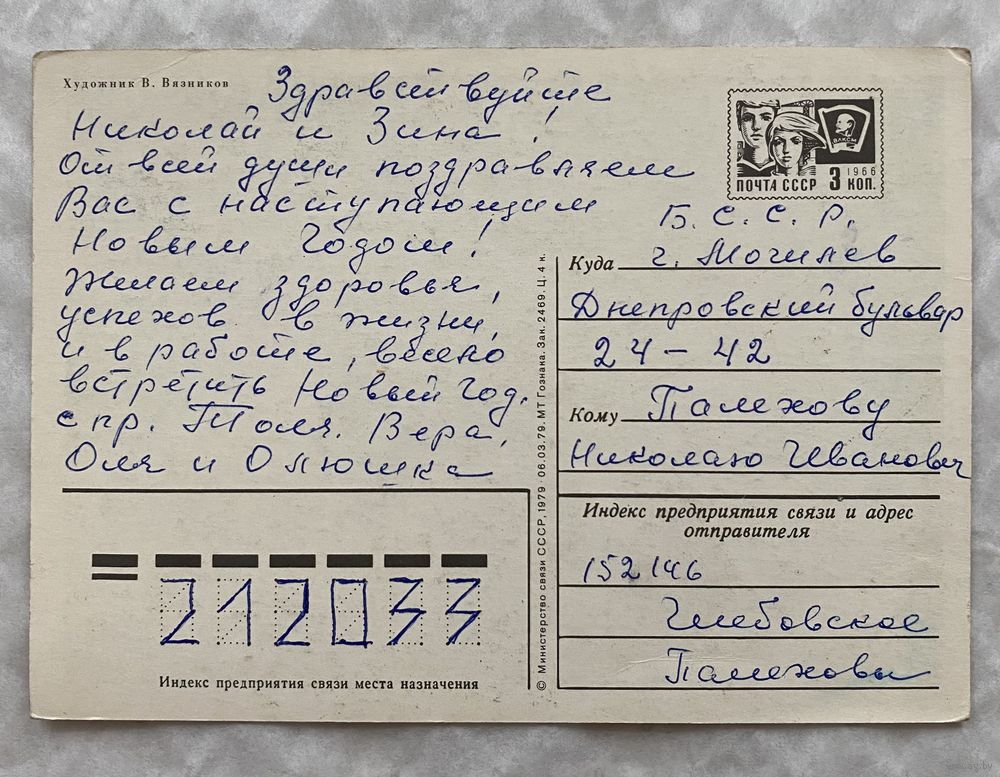 Художник В. Вязников
Здравствуйте
Николай и Зина!
От всей души поздравляем
Вас с наступающим
Новым Годом!
Желаем здоровья,
успехов в жизни,
и в работе, весело
встретить Новый Год.
с пр. Толя. Вера,
Оля и Олюшка
ВЛКСМ
1966
ПОЧТА СССР 3 КОП.
Б. С. С. Р.
Куда г. Могилев
Днепровский бульвар
24-42
Кому Палехову
Николаю Иванович
Индекс предприятия связи и адрес
отправителя
152146
Глебовское
Палеховы
© Министерство связи СССР, 1979 · 06.03.79. МТ Гознака. Зак. 2469. Ц. 4 к.
212033
Индекс предприятия связи места назначения